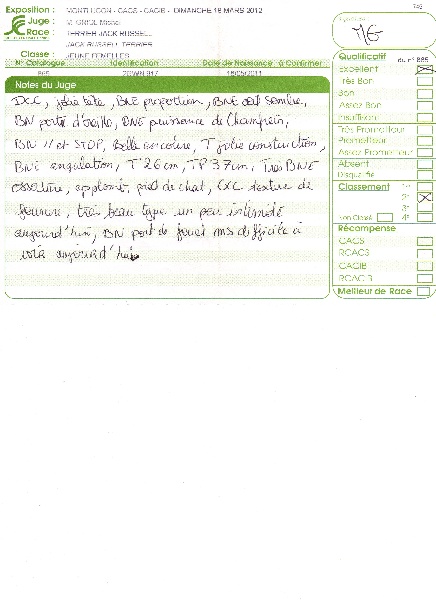 Exposition : MONTLUCON - CACS - CACIB - DIMANCHE 18 MARS 2012
Juge :
Race : TERRIER JACK RUSSELL
JACK RUSSELL TERRIER
Classe : JEUNE FEMELLES
N° Catalogue Identification Date de Naissance à Confirmer
865 16/05/2011
Notes du Juge
DCC, jolie tête, BNE proportion, BNE oeil sombre,
BN porté d'oreille, BNE puissance de
BN // et STOP, belle encolure, T jolie construction,
BNE angulation, T 26cm, TP 37cm, Très BNE
ossature, aplomb, pied de chat, CXC denture de
fermeture, très beau type un peu intimidé
aujourd'hui, BN port de fouet ms difficile à
voir aujourd'hui
Qualificatif du n° 865
Excellent
Très Bon
Bon
Assez Bon
Insuffisant
Très Prometteur
Prometteur
Assez Prometteur
Absent
Disqualifié
Classement 1er
2e
3e
Non Classé 4e
Récompense
CACS
RCACS
CACIB
RCACIB
Meilleur de Race